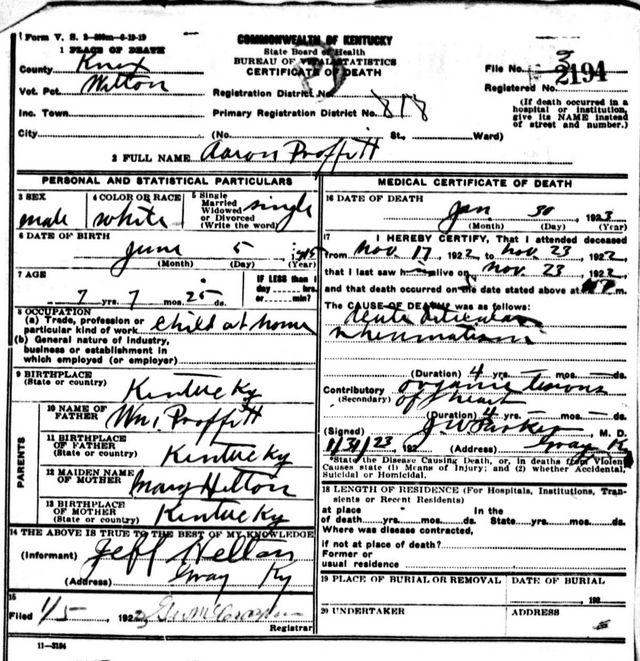 Form V. S.
COMMONWEALTH OF KENTUCKY
State Board of Health
BUREAU OF VITAL STATISTICS
CERTIFICATE OF DEATH
1 PLACE OF DEATH
County Knox
Vot. Pct.
Inc. Town
City
Registration District No.
Primary Registration District No. 818
(No. St., Ward)
File No. 2194
Registered No.
(If death occurred in a
hospital or institution,
give its NAME instead
of street and number.)
2 FULL NAME Aaron Proffitt
PERSONAL AND STATISTICAL PARTICULARS
3 SEX
male
4 COLOR OR RACE
white
5 Single
Married
Widowed
or Divorced
(Write the word)
single
6 DATE OF BIRTH
June 5
(Month) (Day) (Year)
7 AGE
7 yrs. 7 mos. 25 ds.
IF LESS than 1
day hrs.
or min?
8 OCCUPATION
(a) Trade, profession or
particular kind of work Child at home
(b) General nature of industry,
business or establishment in
which employed (or employer)
9 BIRTHPLACE
(State or country) Kentucky
PARENTS
10 NAME OF
FATHER Wm. Proffitt
11 BIRTHPLACE
OF FATHER
(State or country) Kentucky
12 MAIDEN NAME
OF MOTHER Mary Helton
13 BIRTHPLACE
OF MOTHER
(State or country) Kentucky
14 THE ABOVE IS TRUE TO THE BEST OF MY KNOWLEDGE
(Informant) Jeff Helton
(Address) Gray Ky
15
Filed 1/5 192
Registrar
11—3184
MEDICAL CERTIFICATE OF DEATH
16 DATE OF DEATH
Jan 30 1923
(Month) (Day) (Year)
17 I HEREBY CERTIFY, That I attended deceased
from Nov. 17, 1922, to Nov. 23, 1922,
that I last saw h alive on Nov. 23, 1922,
and that death occurred on the date stated above at m.
The CAUSE OF DEATH was as follows:
Acute articular
rheumatism
(Duration) 4 yrs. mos. ds.
Contributory organic
(Secondary) of heart
(Duration) 4 yrs. mos. ds.
(Signed) J W Parker M. D.
1/31/23, 192 (Address) Gray Ky
State the Disease Causing Death, or, in deaths from Violent
Causes state (1) Means of Injury; and (2) whether Accidental,
Suicidal or Homicidal.
18 LENGTH OF RESIDENCE (For Hospitals, Institutions, Tran-
sients or Recent Residents)
at place In the
of death yrs. mos. ds. State yrs. mos. ds.
Where was disease contracted,
if not at place of death?
Former or
usual residence
19 PLACE OF BURIAL OR REMOVAL
DATE OF BURIAL
192
20 UNDERTAKER
ADDRESS